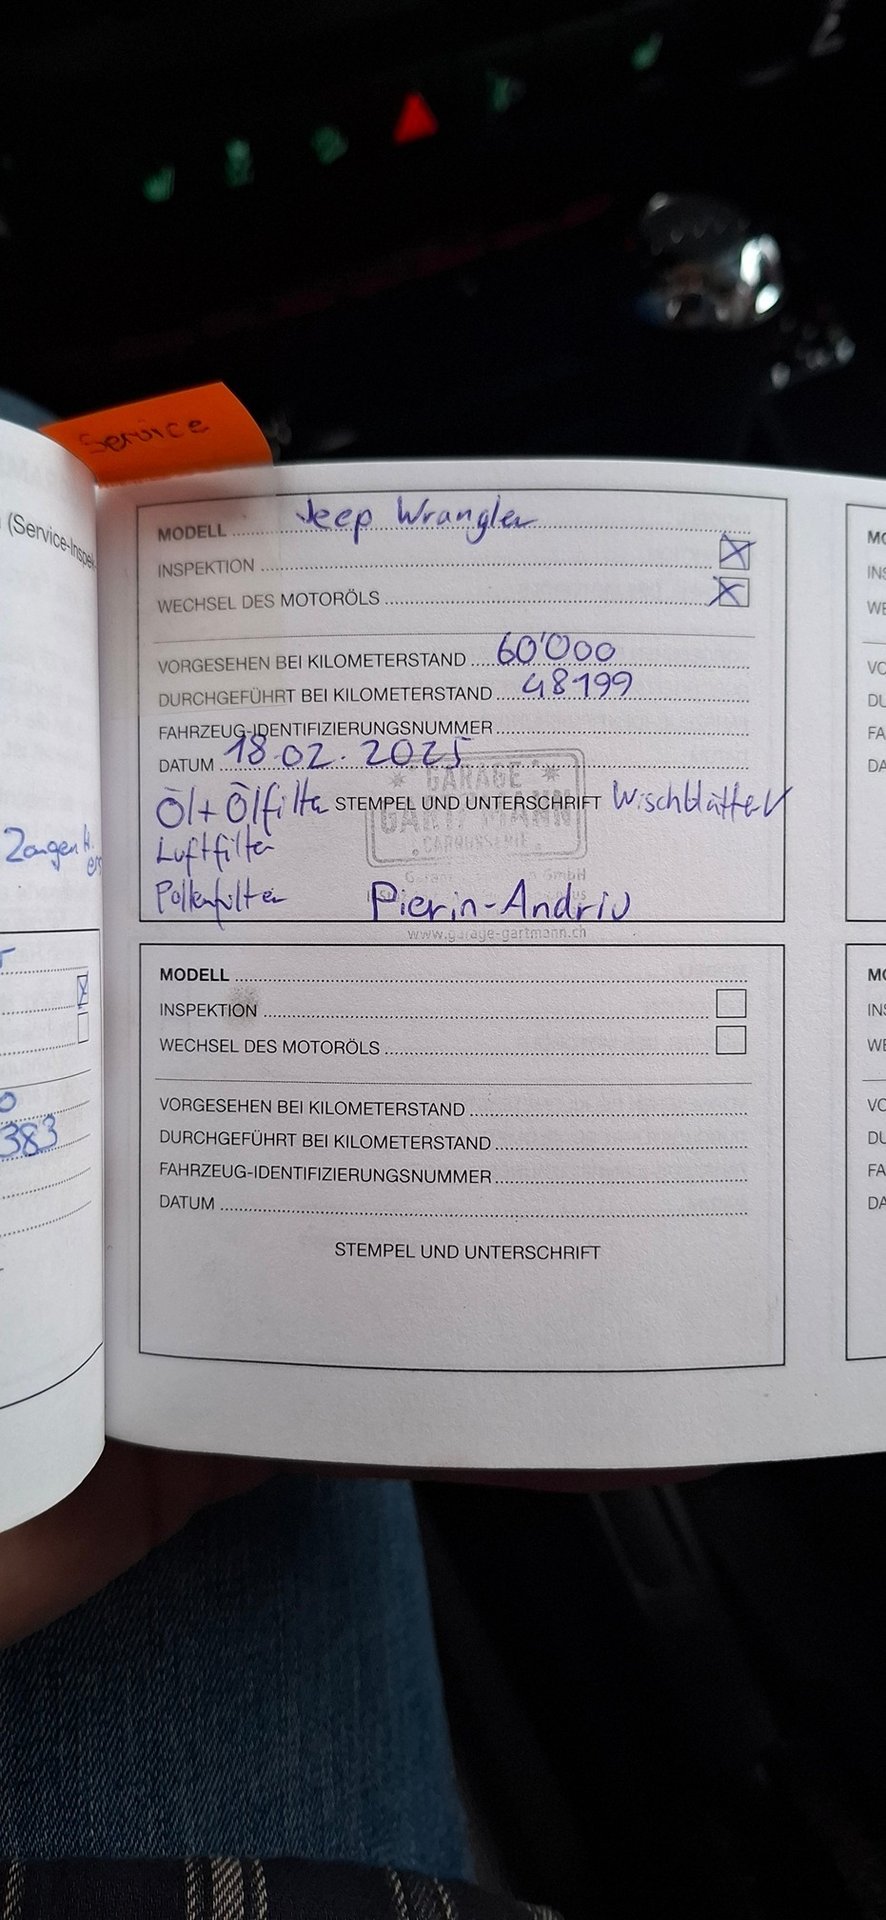 Service
(Service-Inspek
Zangen H.
383
MODELL Jeep Wrangler
INSPEKTION X
WECHSEL DES MOTORÖLS X
VORGESEHEN BEI KILOMETERSTAND 60'000
DURCHGEFÜHRT BEI KILOMETERSTAND 48199
FAHRZEUG-IDENTIFIZIERUNGSNUMMER
DATUM 18.02.2025
Öl + Ölfilter STEMPEL UND UNTERSCHRIFT Wischblätter
GARAGE
GARTMANN
CARROSSERIE
Luftfilter
GmbH
Pollenfilter Pierin-Andriu
www.garage-gartmann.ch
MODELL
INSPEKTION
WECHSEL DES MOTORÖLS
VORGESEHEN BEI KILOMETERSTAND
DURCHGEFÜHRT BEI KILOMETERSTAND
FAHRZEUG-IDENTIFIZIERUNGSNUMMER
DATUM
STEMPEL UND UNTERSCHRIFT
MO
INS
WE
VO
DU
FA
DA
MO
INS
WE
VO
DU
FA
DA